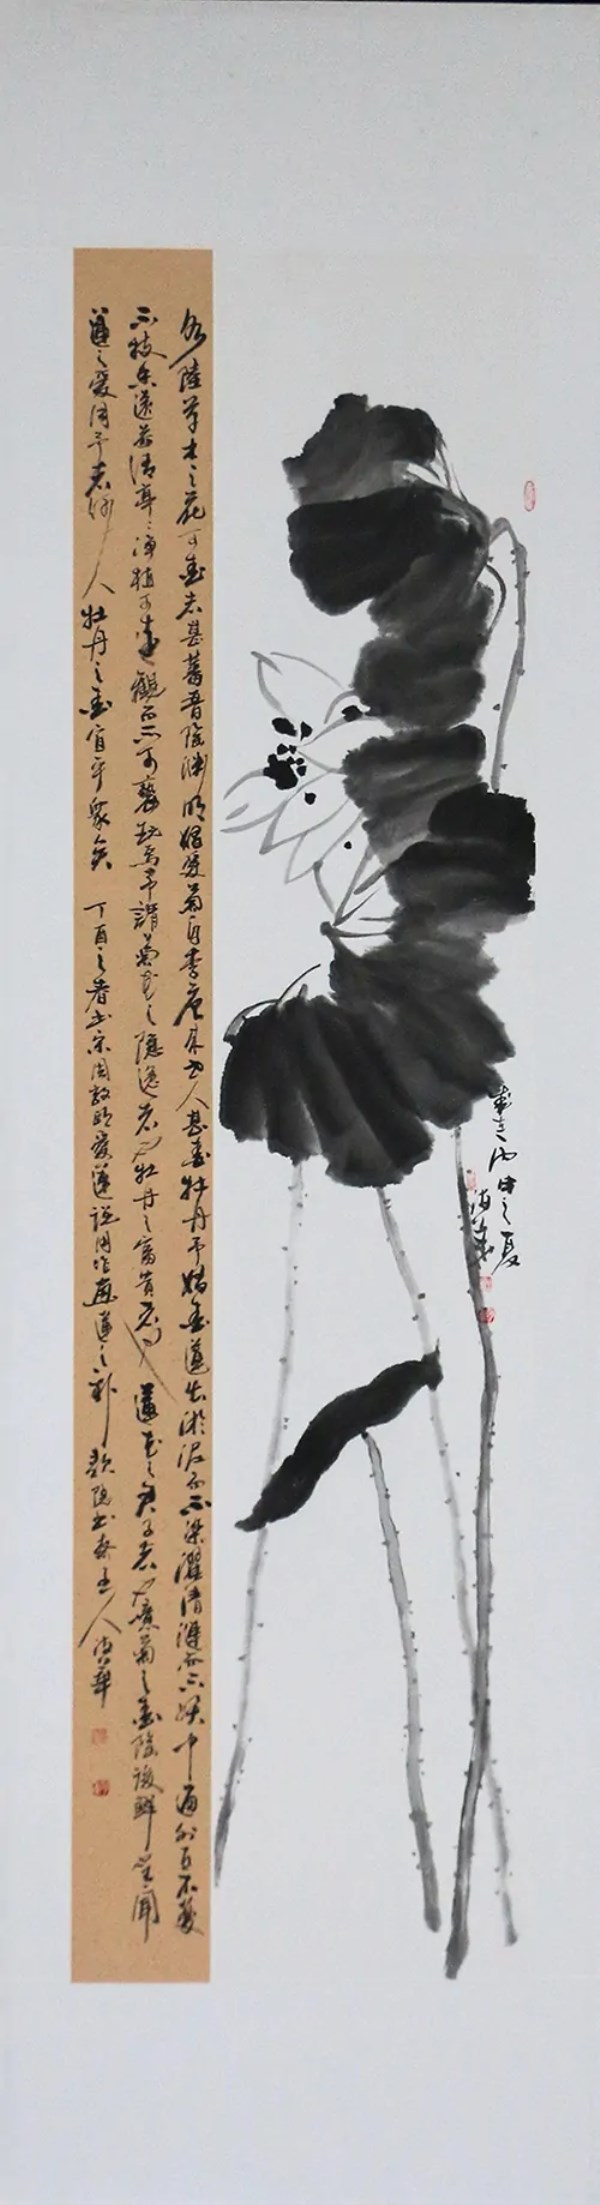 水陸草木之花可愛者甚蕃晋陶淵明獨愛菊自李唐来世人甚愛牡丹予独愛蓮出淤泥而不染濯清漣而不妖中通外直不蔓
不枝香遠益清亭亭净植可遠觀而不可褻玩焉予謂菊花之隱逸者也牡丹之富貴者也蓮花之君子者也噫菊之愛陶後鮮有聞
蓮之愛同予者何人牡丹之愛宜乎衆矣 丁酉之春书宋周敦頤愛蓮説用作画蓮之补 主人海華
丙申之夏
海華